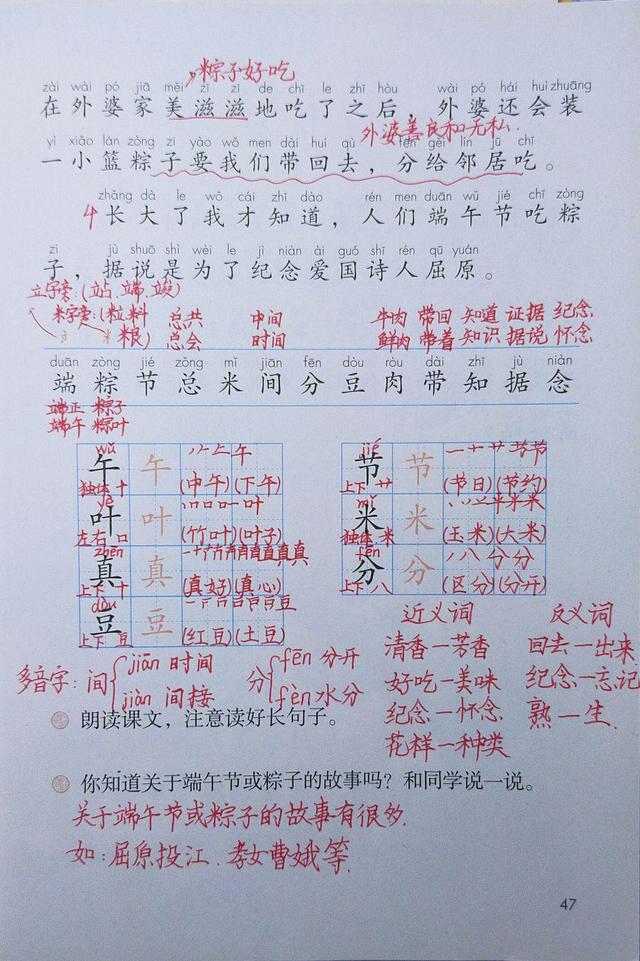 粽子好吃
zài wài pó jiā měi zī zī de chī le zhī hòu wài pó hái huì zhuāng
在外婆家美滋滋地吃了之后，外婆还会装
外婆善良和无私.
yì xiǎo lán zòng zi yào wǒ men dài huí qù fēn gěi lín jū chī
一小篮粽子要我们带回去，分给邻居吃。
zhǎng dà le wǒ cái zhī dào rén men duān wǔ jié chī zòng
4 长大了我才知道，人们端午节吃粽
zi jù shuō shì wèi le jì niàn ài guó shī rén qū yuán
子，据说是为了纪念爱国诗人屈原。
立字旁：(站、端、竣)
米字旁：(粒、料 总共 中间 牛肉 带回 知道 证据 纪念
粮) 总会 时间 鲜肉 带着 知识 据说 怀念
duān zòng jié zǒng mǐ jiān fēn dòu ròu dài zhī jù niàn
端 粽 节 总 米 间 分 豆 肉 带 知 据 念
端正 粽子
端午 粽叶
wǔ jié
午 午 节 节
独体 十 (中午)(下午) 上下 艹 (节日)(节约)
yè mǐ
叶 叶 米 米
左右 口 (竹叶)(叶子) 独体 米 (玉米)(大米)
zhēn fēn
真 真 分 分
上下 十 (真好)(真心) 上下 八 (区分)(分开)
dòu
豆 豆
上下 豆 (红豆)(土豆)
近义词 反义词
清香—芳香 回去—出来
好吃—美味 纪念—忘记
纪念—怀念 熟—生.
花样—种类
多音字：间 jiān 时间 分 fēn 分开
jiàn 间接 fèn 水分
朗读课文，注意读好长句子。
你知道关于端午节或粽子的故事吗？和同学说一说。
关于端午节或粽子的故事有很多.
如：屈原投江、孝女曹娥等.
47